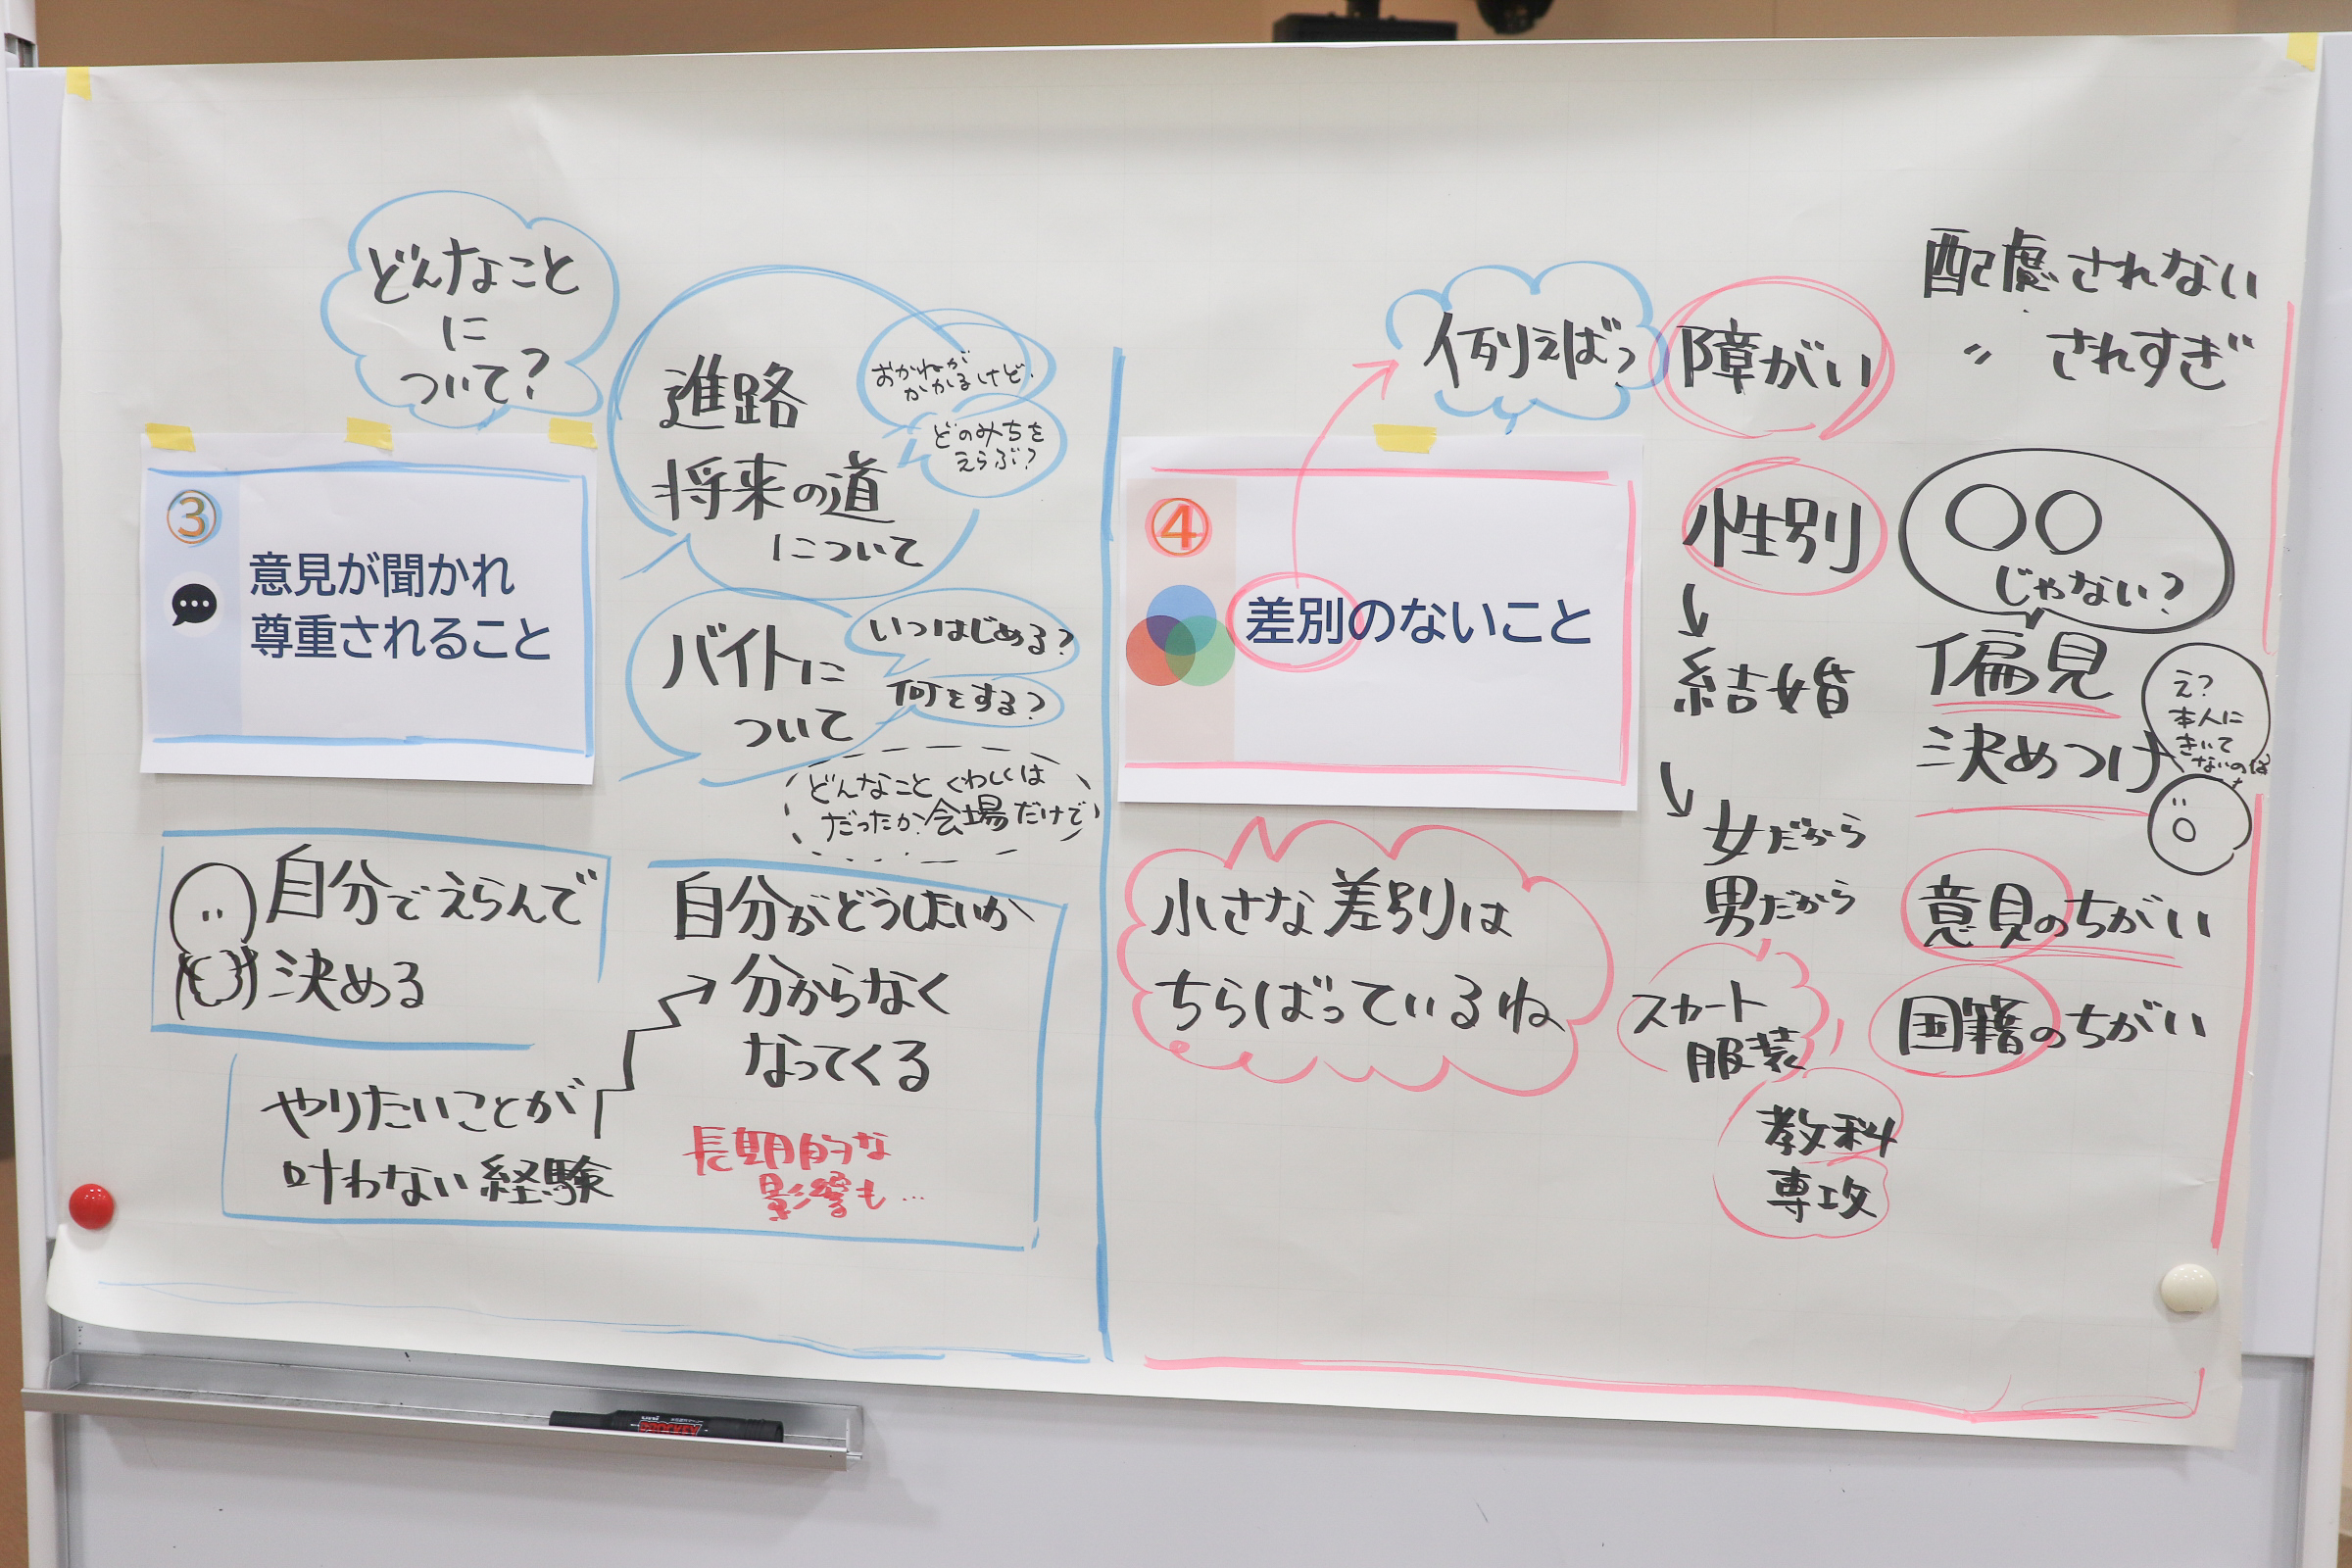 どんなこと
に
ついて?
③
意見が聞かれ
尊重されること
進路
将来の道
について
おかねが
かかるけど
どのみちを
えらぶ?
バイトに
ついて
いつはじめる?
何をする?
どんなこと くわしくは
だったか 会場だけで
自分でえらんで
決める
自分がどうしたいか
分からなく
なってくる
やりたいことが
叶わない経験
長期的な
影響も…
④
差別のないこと
例えば?
小さな差別は
ちらばっているね
障がい
配慮されない
〃 されすぎ
性別
結婚
女だから
男だから
スカート
服装
教科
専攻
○○
じゃない?
偏見
決めつけ
え?
本人に
きいて
ないのに
意見のちがい
国籍のちがい